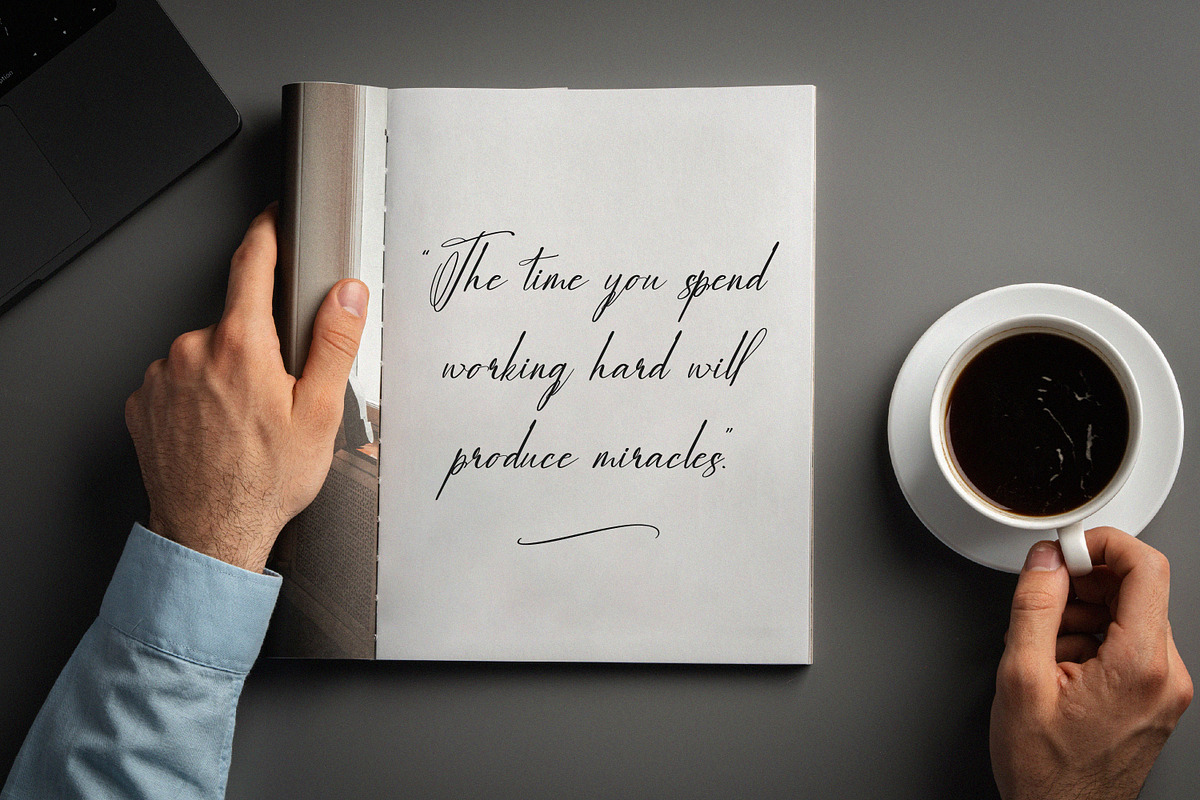 “The time you spend
working hard will
produce miracles.”